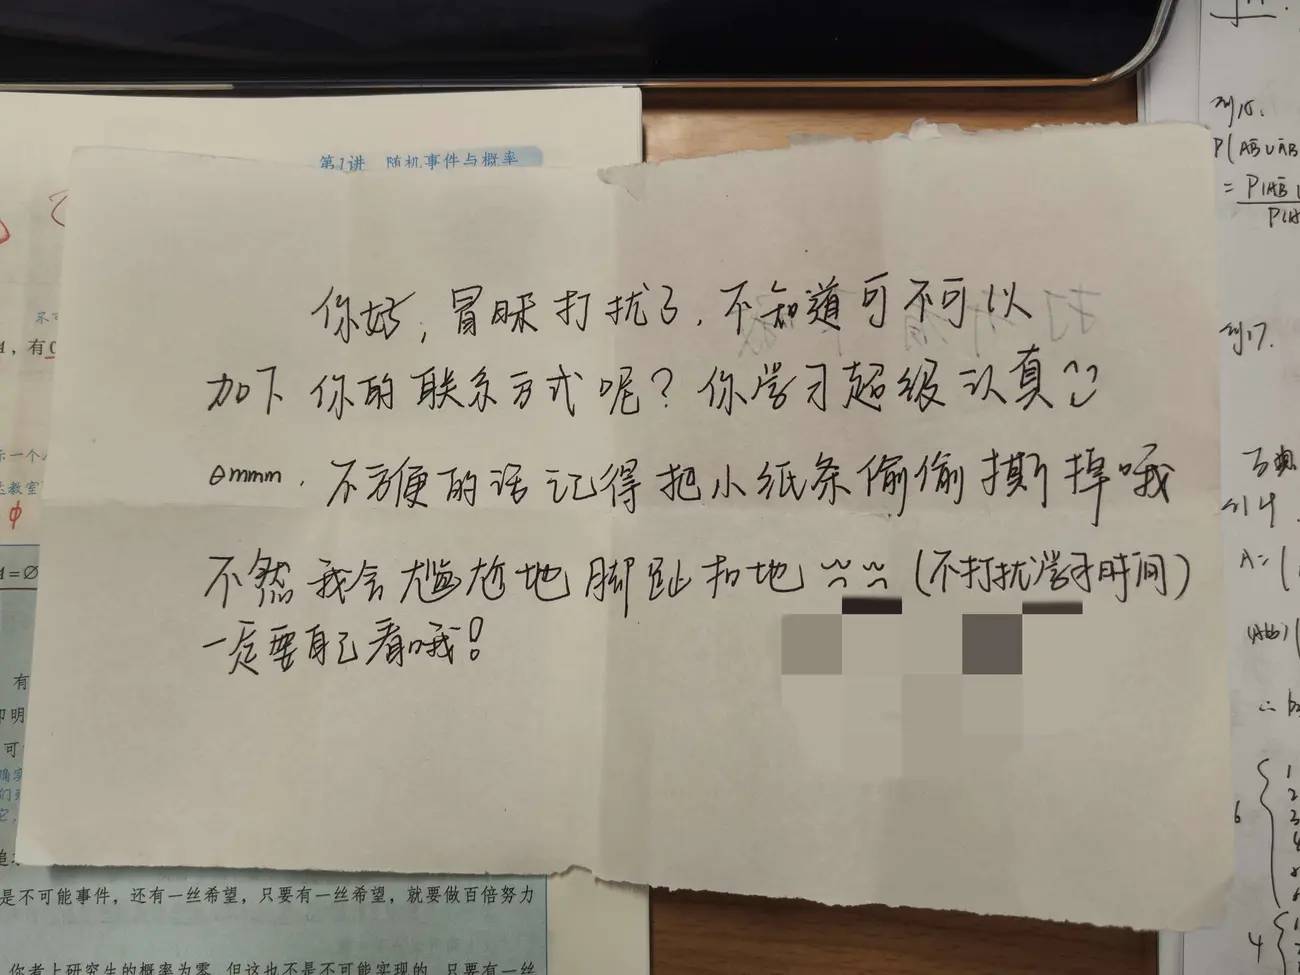 第1讲 随机事件与概率
你好，冒昧打扰了，不知道可不可以
加下你的联系方式呢？你学习超级认真
emmm．不方便的话记得把小纸条偷偷撕掉哦
不然我会尴尬地脚趾扣地（不打扰学习时间）
一定要自己看哦！
是不可能事件，还有一丝希望，只要有一丝希望，就要做百倍努力
你考上研究生的概率为零，但这也不是不可能实现的，只要有一丝
例15.
例17.
A=
(Ab)